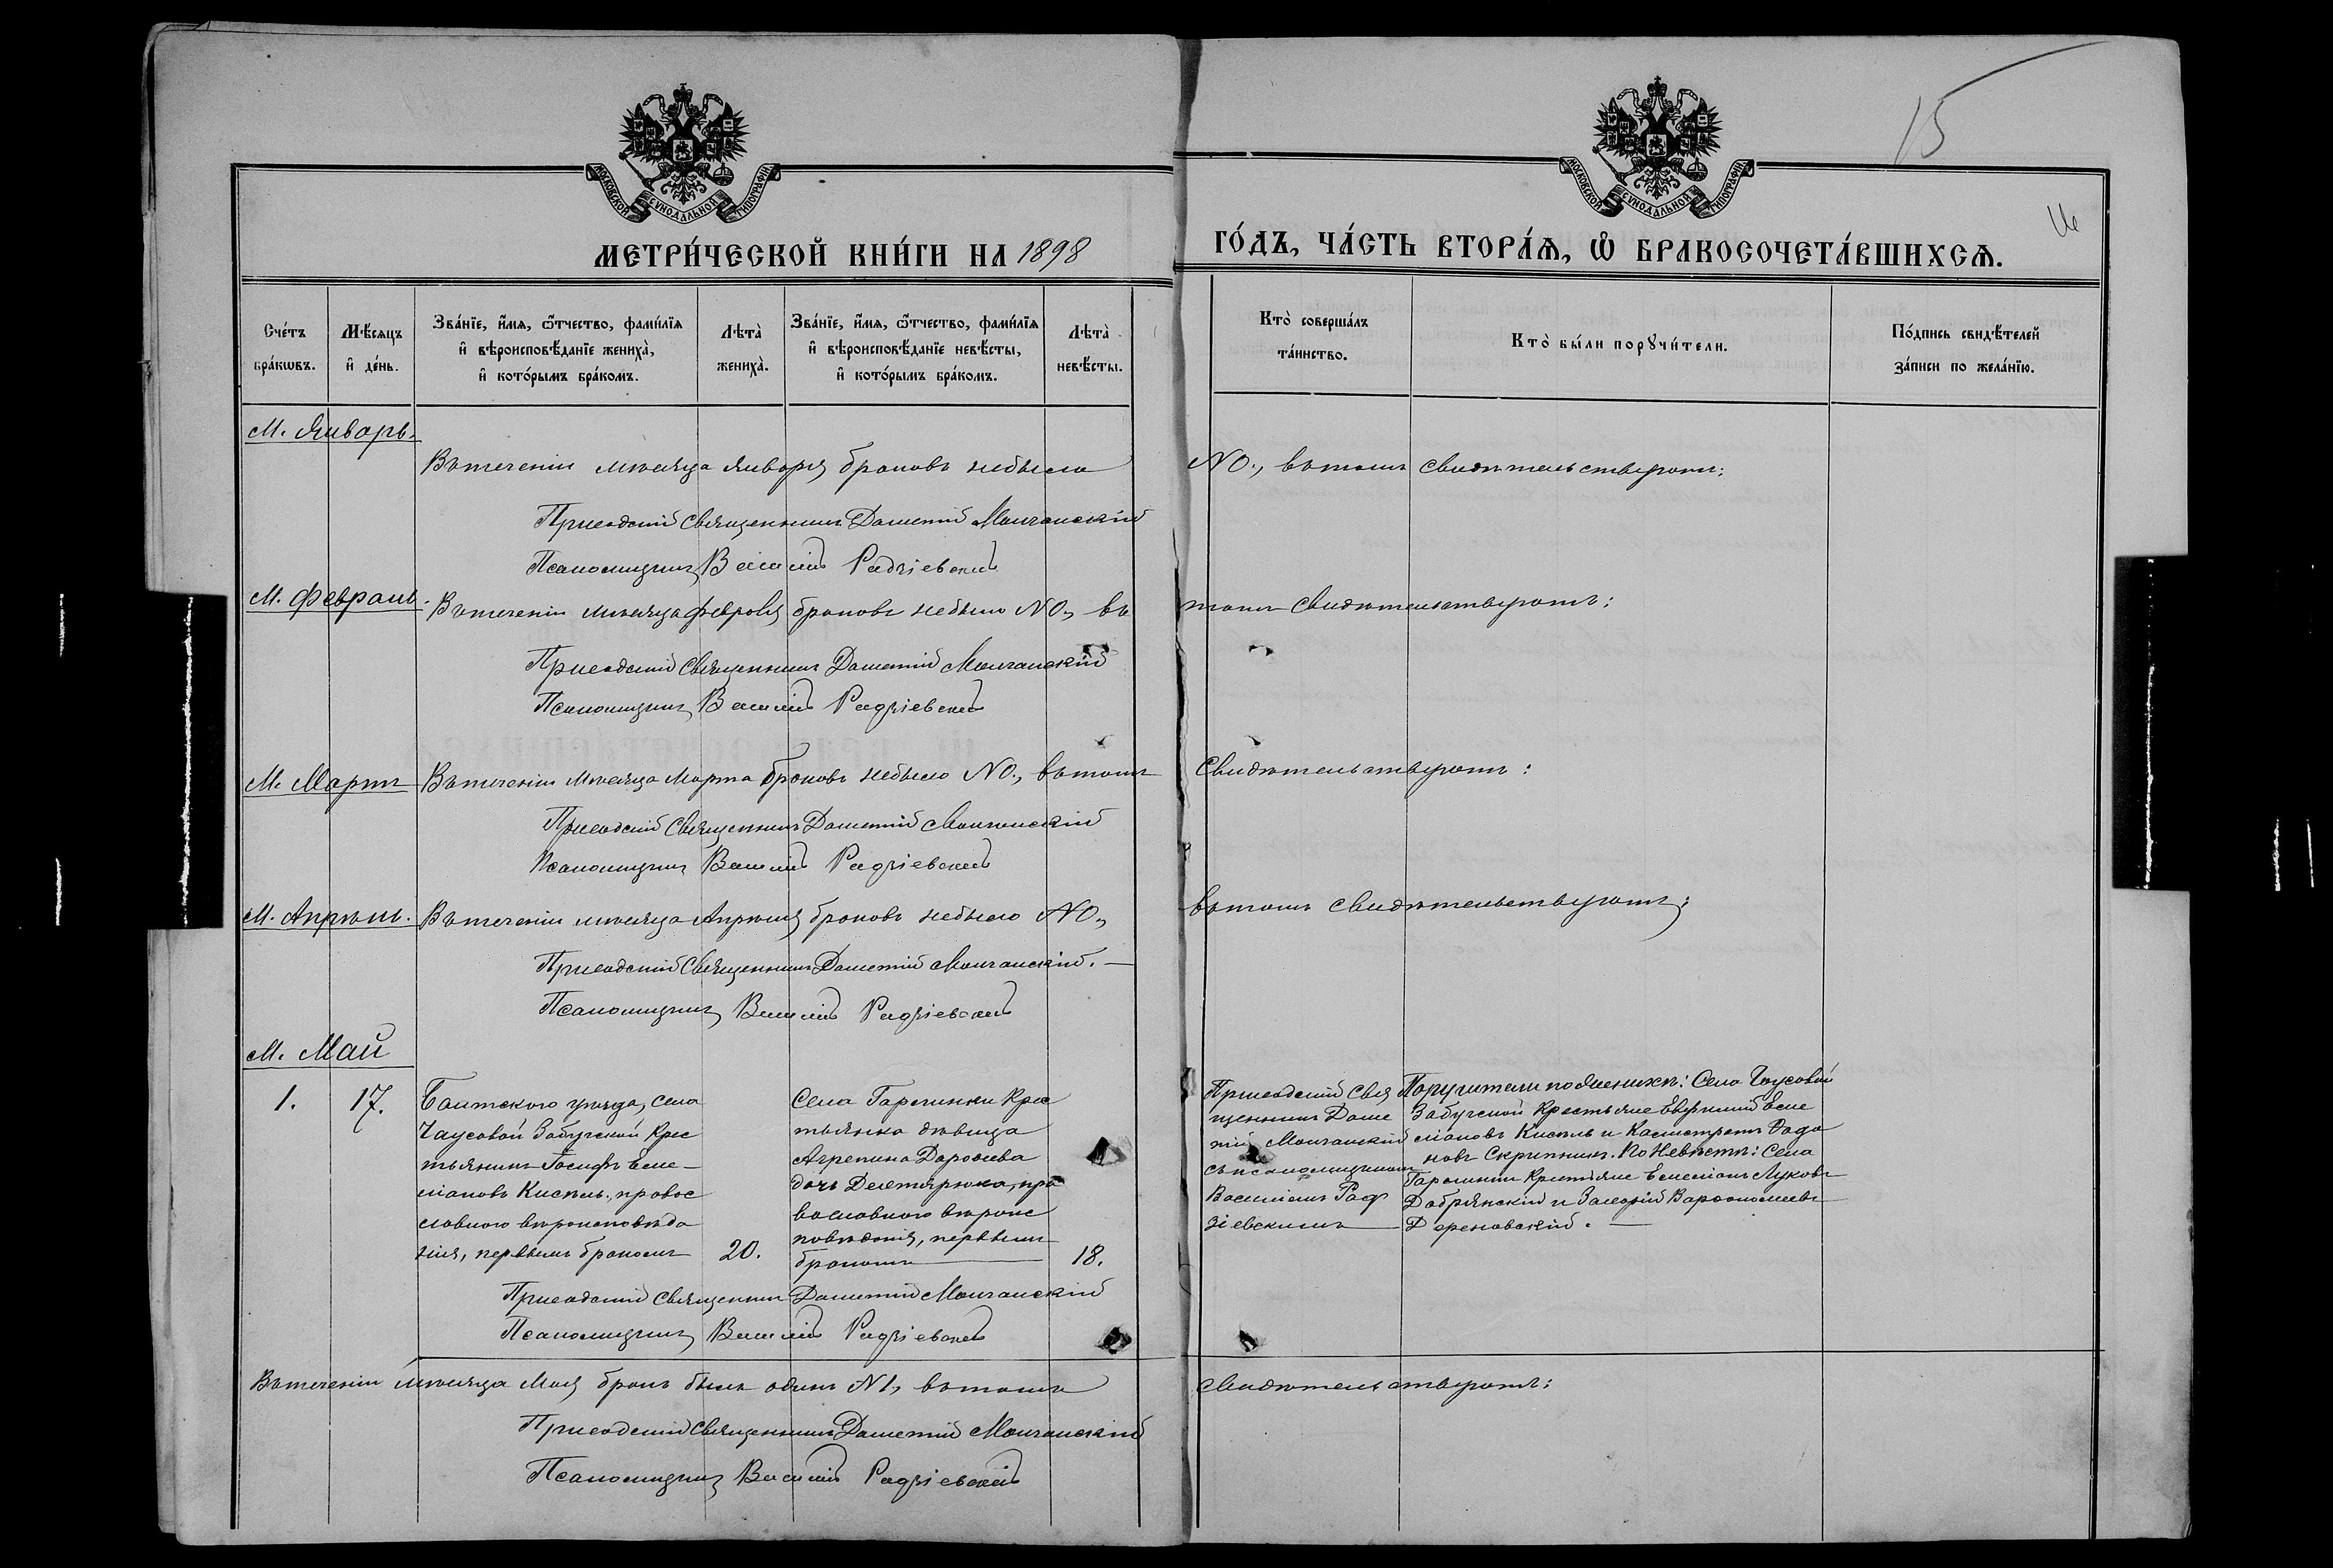 15
МОСКОВСКОЙ СѴНОДАЛЬНОЙ ТИПОГРАФІИ
МОСКОВСКОЙ СѴНОДАЛЬНОЙ ТИПОГРАФІИ
МЕТРИ́ЧЕСКОЙ КНИ́ГИ НА 1898
ГО́ДЪ, ЧА́СТЬ ВТОРА́Ѧ, Ѡ҆ БРАКОСОЧЕТА́ВШИХСѦ.
Сче́тъ бра́кѡвъ.
Мѣ́сѧцъ и҆ де́нь.
Зва́нїе, и҆́мѧ, ѻ҆́тчество, фами́лїѧ и҆ вѣроисповѣ́данїе жениха̀, и҆ кото́рымъ бра́комъ.
Лѣта̀ жениха̀.
Зва́нїе, и҆́мѧ, ѻ҆́тчество, фами́лїѧ и҆ вѣроисповѣ́данїе невѣ́сты, и҆ кото́рымъ бра́комъ.
Лѣта̀ невѣ́сты.
Кто̀ соверша́лъ та́инство.
Кто̀ бы́ли порꙋчи́тели.
По́дпись свидѣ́телей за́писи по жела́нїю.
М. Январь.
Въ теченіи мѣсяца Января браковъ небыло NО., въ томъ свидѣтельствуютъ:
Приходскій Священникъ Дометій Молчанскій
Псаломщикъ Василій Радзіевскій
М. Февраль.
Въ теченіи мѣсяца Февраля браковъ небыло NО., въ томъ свидѣтельствуютъ:
Приходскій Священникъ Дометій Молчанскій
Псаломщикъ Василій Радзіевскій
М. Мартъ
Въ теченіи мѣсяца Марта браковъ небыло NО., въ томъ свидѣтельствуютъ:
Приходскій Священникъ Дометій Молчанскій
Псаломщикъ Василій Радзіевскій
М. Апрѣль.
Въ теченіи мѣсяца Апрѣля браковъ небыло NО., въ томъ свидѣтельствуютъ:
Приходскій Священникъ Дометій Молчанскій.
Псаломщикъ Василій Радзіевскій
М. Май
1.
17.
Балтского уѣзда, села
Чаусовой Забугской Крес
тьянинъ Іосифъ Еме-
ліановъ Кисѣль, правос
лавного вѣроисповѣда
нія, первымъ бракомъ
20.
Села Крес
тьянка дѣвица
Агрепина Дороѳеева
дочь Дегтярюка, пра
вославного вѣроис
повѣданія, первымъ
бракомъ
18.
Приходскій Свя
щенникъ Доме
тій Молчанскій
съ псаломщикомъ
Василіемъ Рад
зіевскимъ
Поручители по Женихѣ: Села Чаусовой
Забугской Крестьяне Еме
ліановъ Кисѣль и Калистратъ
новъ Скрипникъ. По Невѣстѣ: Села
Крестьяне Емеліанъ Луковъ
Добрянскій и Варѳоломеевъ
Дереновскій.
Приходскій Священникъ Дометій Молчанскій
Псаломщикъ Василій Радзіевскій
Въ теченіи мѣсяца Мая бракъ былъ одинъ N1, въ томъ свидѣтельствуютъ:
Приходскій Священникъ Дометій Молчанскій
Псаломщикъ Василій Радзіевскій